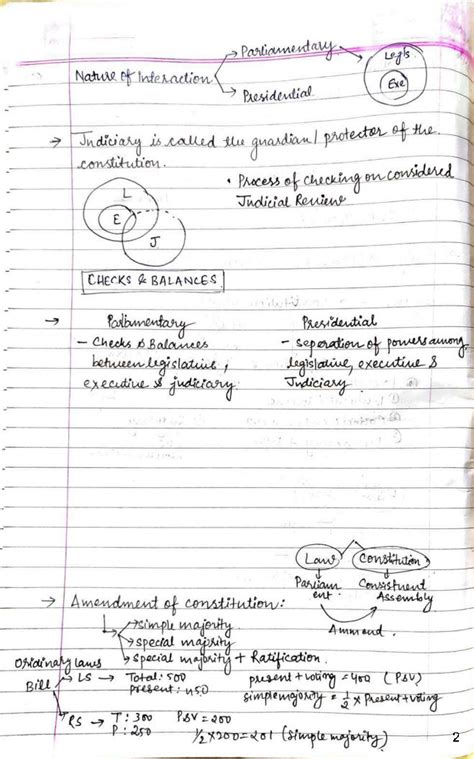 Nature of Interaction → Parliamentary
→ Presidential
Legis
Exe
→ Judiciary is called the guardian/protector of the
constitution.
• Process of checking on considered
Judicial Review
L
E
J
CHECKS & BALANCES
→ Parliamentary
- Checks & Balances
between legislative,
executive & judiciary
Presidential
- seperation of powers among
legislative, executive &
Judiciary
Law Constitution
Parliam
ent.
Constituent
Assembly
Ammend.
→ Amendment of constitution:
→ simple majority
→ special majority
→ special majority + Ratification.
Oridinary laws
Bill → LS → Total: 500
present: 450
present + voting = 400 (P&V)
simple majority = 1/2 × Present + Voting
→ RS → T: 300 P&V = 200
P: 250 1/2 × 200 = 201 (simple majority)
2